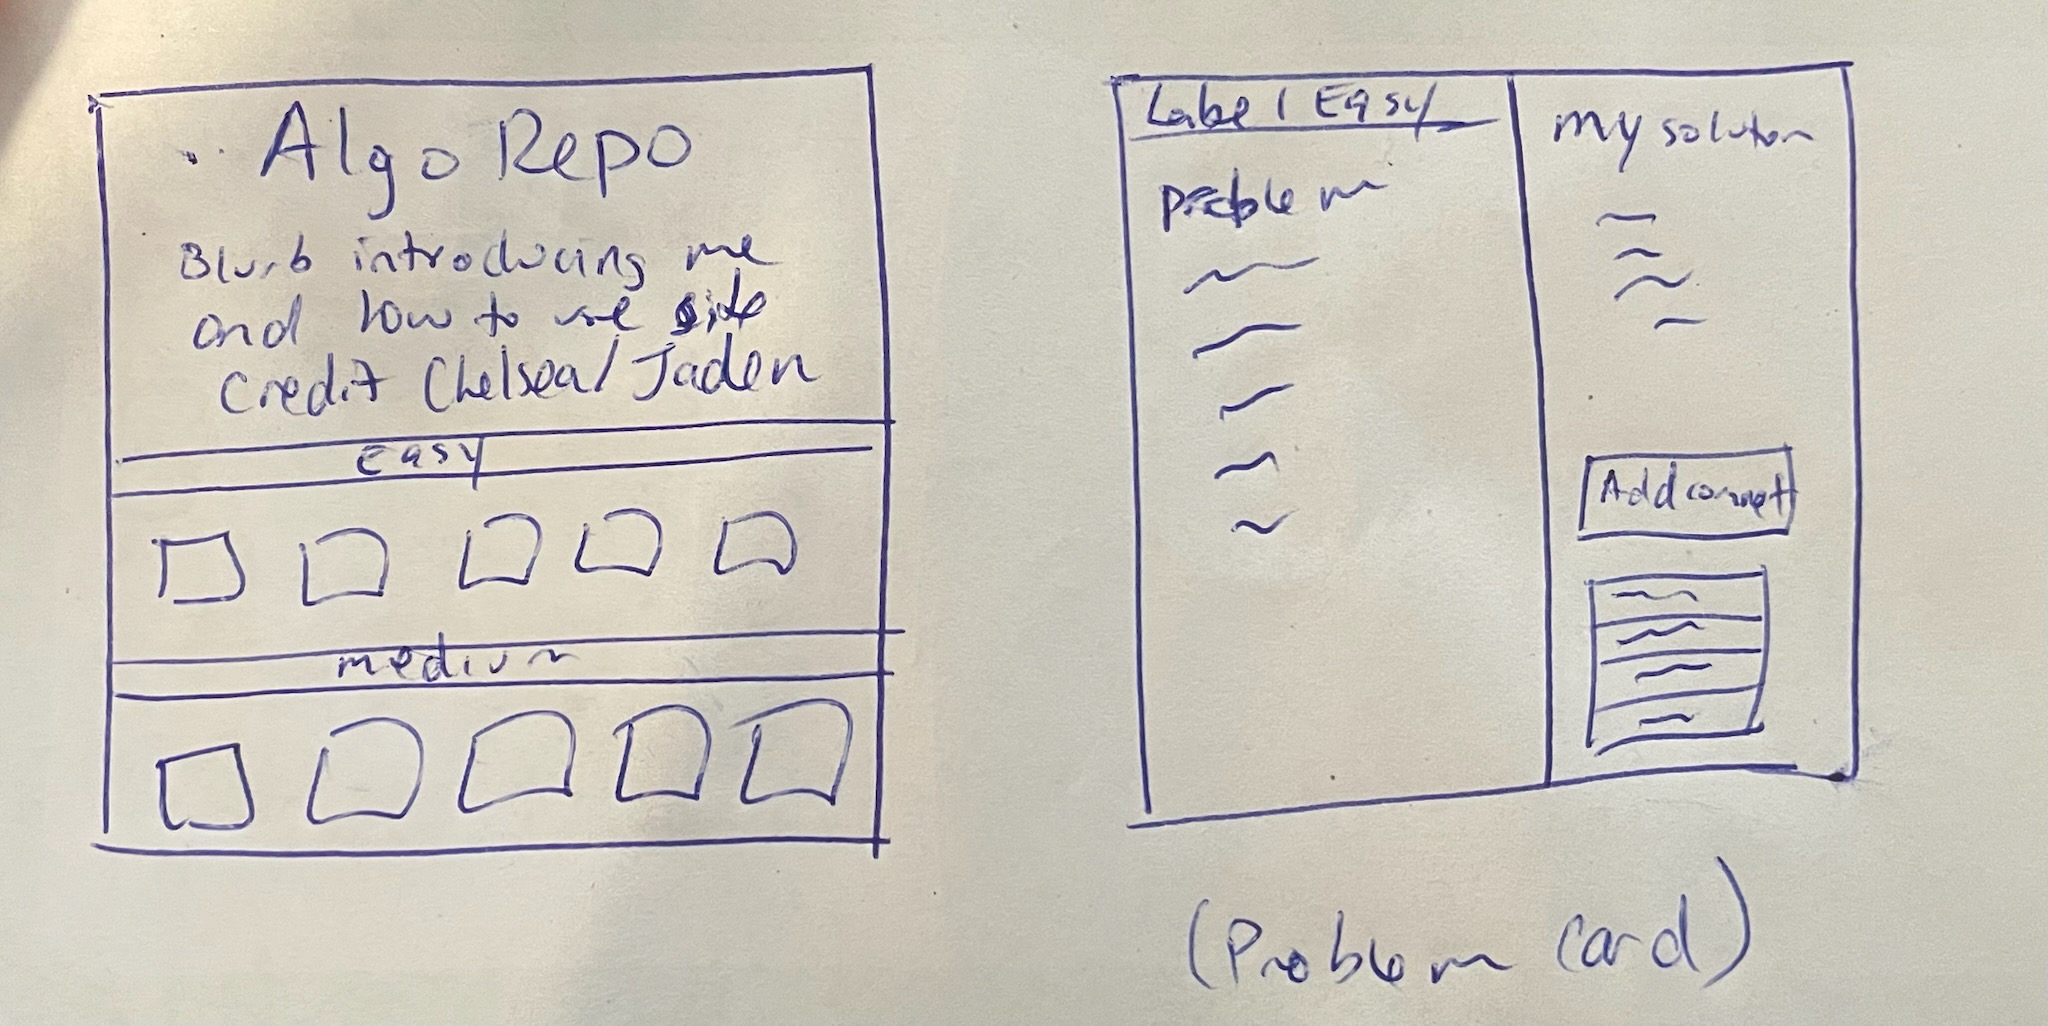 Algo Repo
Blurb introducing me
and how to use site
Credit Chelsea/Jaden
Easy
medium
Label Easy
Problem
my solution
Add comment
(Problem Card)